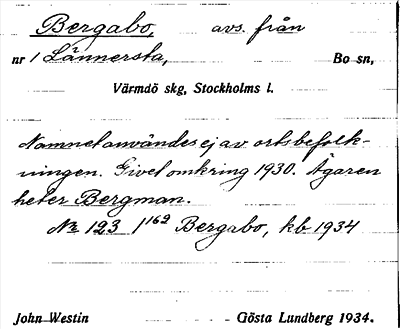 Bergabo, avs. från
nr 1 Lännersta, Bo sn,
Värmdö skg, Stockholms l.
Namnet användes ej av ortsbefolk-
ningen. Givet omkring 1930. Ägaren
heter Bergman.
No 123 1¹⁶² Bergabo, kb 1934
John Westin Gösta Lundberg 1934.